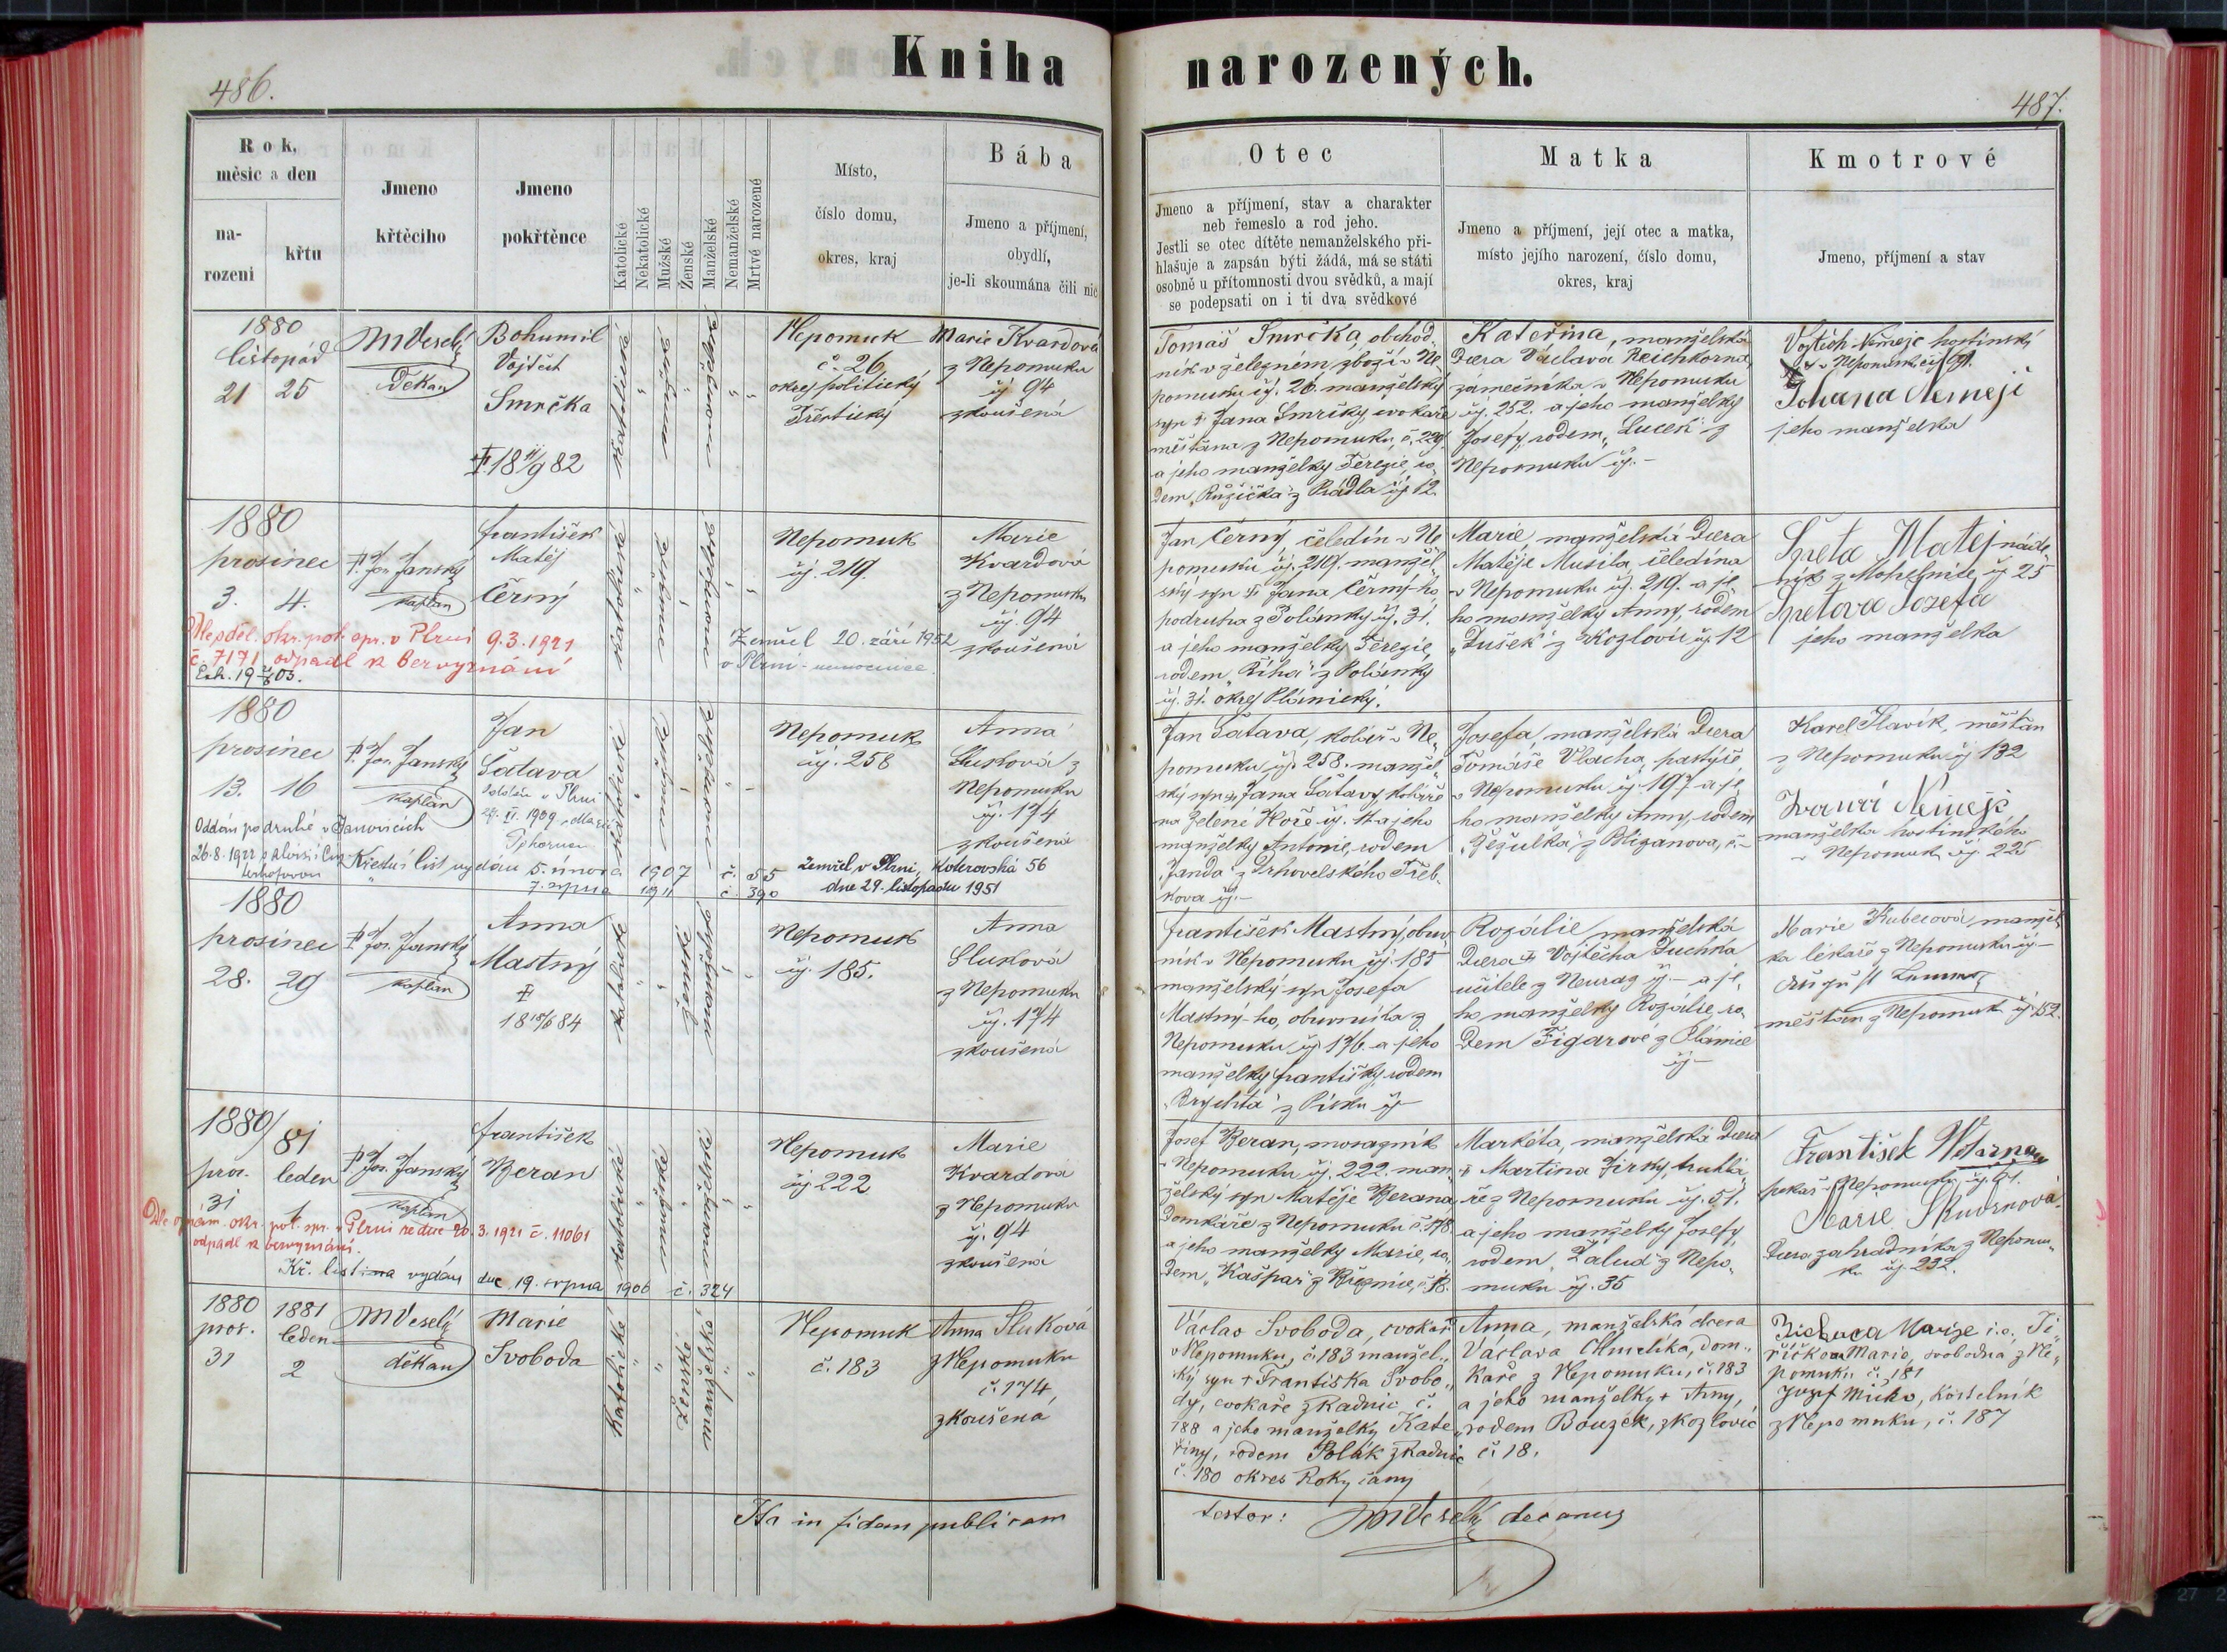 Kniha
narozených.
486.
487.
Rok,
měsíc a den
na-
rozeni
křtu
Jmeno
křtěcího
Jmeno
pokřtěnce
Katolické
Nekatolické
Mužské
Ženské
Manželské
Nemanželské
Mrtvé narozené
Místo,
číslo domu,
okres, kraj
Bába
Jmeno a příjmení,
obydlí,
je-li skoumána čili nic
Otec
Jmeno a příjmení, stav a charakter
neb řemeslo a rod jeho.
Jestli se otec dítěte nemanželského při-
hlašuje a zapsán býti žádá, má se státi
osobně u přítomnosti dvou svědků, a mají
se podepsati on i ti dva svědkové
Matka
Jmeno a příjmení, její otec a matka,
místo jejího narození, číslo domu,
okres, kraj
Kmotrové
Jmeno, příjmení a stav
1880
listopád
21 25
MVeselý
Děkan
Bohumil
Vojtěch
Smrčka
18 11/9 82
katolické
mužské
manželské
Nepomuk
č. 26
okres politický
Přeštický
Marie Kvardová
z Nepomuku
čj 94
zkoušená
Tomáš Smrčka, obchod-
ník v železném zboží v Ne-
pomuku čj. 26. manželský
syn † Jana Smrčky, cvokaře
měšťana z Nepomuku, č. 229
a jeho manželky Terezie, ro-
dem „Růžička" z Prádla čj 12.
Kateřina, manželská
dcera Václava Reichkorna,
zámečníka v Nepomuku
čj. 252. a jeho manželky
Josefy, rodem „Lucek" z
Nepomuku čj. -
Vojtěch Němejc hostinský
v Nepomuku čj 91.
Johana Nemejc
jeho manželka
1880
prosinec
3. 4.
P. Jos. Janský
kaplan
František
Matěj
Černý
katolické
manželské
Nepomuk
čj. 219.
Marie
Kvardová
z Nepomuku
čj. 94
zkoušená
okr. pol. spr. v Plzni 9.3.1921
č. 7171 odpadl k bezvyznání
Zemřel 20. září 1952
v Plzni - nemocnice
Jan Černý čeledín v Ne-
pomuku čj. 219. manžel-
ský syn † Jana Černý-ho,
podruha z Polánky čj. 31.
a jeho manželky Terezie,
rodem „Říha" z Polánky
čj. 31. okres Plánický.
Marie, manželská dcera
Matěje Musila, čeledína
v Nepomuku čj. 219. a je-
ho manželky Anny, rodem
„Dušek" z Kozlovic čj. 12
Šneta Matěj náde-
ník z Mohelnice čj 25
Josefa
jeho manželka
1880
prosinec
13. 16
P. Jos. Janský
kaplan
Jan
Šatava
katolické
manželské
Nepomuk
čj. 258
Anna
Sluková z
Nepomuku
čj. 174
zkoušená
Oddán podruhé v Janovicích
26.8.1922
Křestní list vydán 5. února 1907 č. 55
7. srpna 1911 č 390
Zemřel v Plzni, Koterovská 56
dne 29. listopadu 1951
Jan Šatava, kolář v Ne-
pomuku čj. 258. manžel-
ský syn † Jana Šatavy, koláře
na Zelené Hoře čj. 11 a jeho
manželky Antonie, rodem
„Janda" z Drhovelského Třeb-
kova čj. -
Josefa, manželská dcera
Tomáše Vlacha, pastýře
v Nepomuku čj. 197 a je-
ho manželky Anny, rodem
„Žežulka" z Blizanova, č -
Karel Slavík, měšťan
z Nepomuku čj 132
Nemejc
manželka hostinského
v Nepomuk čj. 225
1880
prosinec
28. 29
P. Jos. Janský
kaplan
Anna
Mastný
†
18 18/6 84
katolické
ženské
manželské
Nepomuk
čj. 185.
Anna
Sluková
z Nepomuku
čj. 174
zkoušená
František Mastný, obuv-
ník v Nepomuku čj. 185
manželský syn Josefa
Mastný-ho, obuvníka z
Nepomuku čj 176 a jeho
manželky Františky, rodem
„Brychta" z Písku čj -
Rozálie, manželská
dcera † Vojtěcha Duchka
učitele z Neuraz čj. - a je-
ho manželky Rozálie, ro-
dem Figarové z Plánice
čj -
Marie Kubecová, manžel-
ka lékaře z Nepomuku čj. -
měšťan z Nepomuk čj 152.
1880/81
pros. leden
31 1
P. Jos. Janský
kaplan
František
Beran
katolické
mužské
manželské
Nepomuk
čj 222
Marie
Kvardová
z Nepomuku
čj. 94
zkoušená
Dle oznám. okr. pol. spr. v Plzni ze dne 20.3.1921 č. 11061
odpadl k bezvyznání.
Kř. list vydán dne 19. srpna 1906 č. 324
Josef Beran, mosazník
v Nepomuku čj. 222. man-
želský syn Matěje Berana,
domkáře z Nepomuku č. 178
a jeho manželky Marie, ro-
dem „Kašpar" z Březnice, č. 18.
Markéta, manželská dcera
† Martina Jirky, truhlá-
ře z Nepomuku čj. 51.
a jeho manželky Josefy,
rodem „Žalud" z Nepo-
muku čj. 35
František
pekař v Nepomuku čj. 91.
Marie Skudrnová
Dcera zahradníka z Nepomu-
ku čj. 232.
1880 1881
pros. leden
31 2
MVeselý
děkan
Marie
Svoboda
Katolické
Ženské
manželské
Nepomuk
č. 183
Anna Sluková
z Nepomuku
č. 174,
zkoušená
Václav Svoboda, cvokař
v Nepomuku, č. 183 manžel-
ský syn † Františka Svobo-
dy, cvokaře z Radnic č.
188 a jeho manželky Kate-
řiny, rodem Polák z Radnic
č. 180 okres Rokycany
Anna, manželská dcera
Václava Chmelíka, dom-
káře z Nepomuku, č. 183
a jeho manželky † Anny,
rodem Bouzek, z Kozlovic
č. 18.
Marie i.e. Ji-
řičková Marie, svobodná z Ne-
pomuku č. 181
Josef Míčko, kostelník
z Nepomuku, č. 187
Ita in fidem publicam
testor: MVeselý decanus